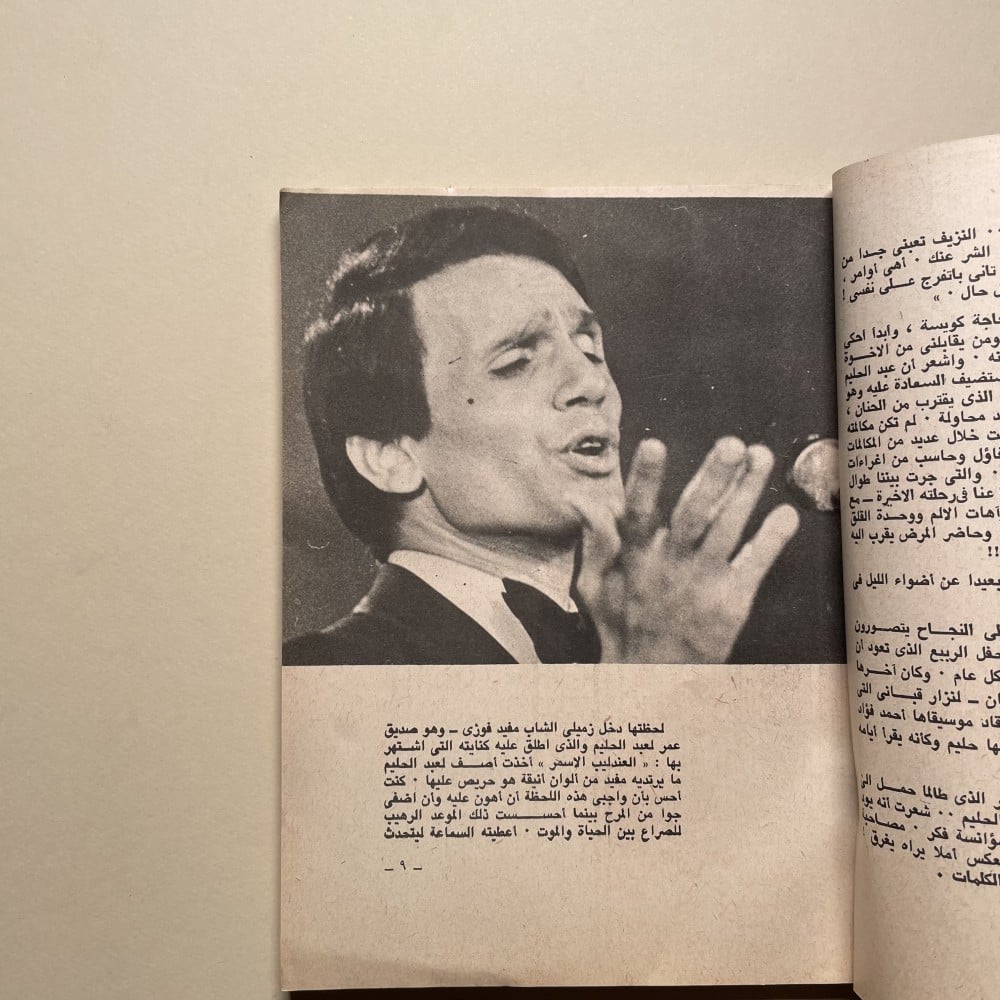 لحظتها دخل زميلى الشاب مفيد فوزى ــ وهو صديق
عمر لعبد الحليم والذى اطلق عليه كنايته التى اشتهر
بها : « العندليب الاسمر » أخذت أصف لعبد الحليم
ما يرتديه مفيد من ألوان أنيقة هو حريص عليها ٠ كنت
أحس بأن واجبى هذه اللحظة أن أهون عليه وأن أضفى
جوا من المرح بينما أحسست ذلك الموعد الرهيب
للصراع بين الحياة والموت ٠ أعطيته السماعة ليتحدث
ــ ٩ ــ
٠٠ النزيف تعبنى جدا من
الشر عنك ٠ أهى أوامر ،
تانى باتفرج على نفسى !
حال ٠ »
كويسة ، وأبدأ احكى
ومن يقابلنى من الاخوة
٠ واشعر أن عبد الحليم
ستضيف السعادة عليه وهو
الذى يقترب من الحنان ،
محاولة ٠ لم تكن مكالمته
خلال عديد من المكالمات
وحاسب من اغراءات
٠ والتى جرت بيننا طوال
عنا فى رحلته الاخيرة ــ مع
آهات الالم ووحدة القلق
وحاضر المرض يقرب اليه
!!
بعيدا عن أضواء الليل فى
النجاح يتصورون
حفل الربيع الذى تعود أن
كل عام ٠ وكان آخرها
ــ لنزار قبانى التى
موسيقاها أحمد فؤاد
حليم وكأنه يقرأ أيامه
الذى طالما حمل الى
الحليم ٠٠ شعرت أنه يود
مؤانسة فكر ٠
أملا يراه يغرق !
الكلمات ٠